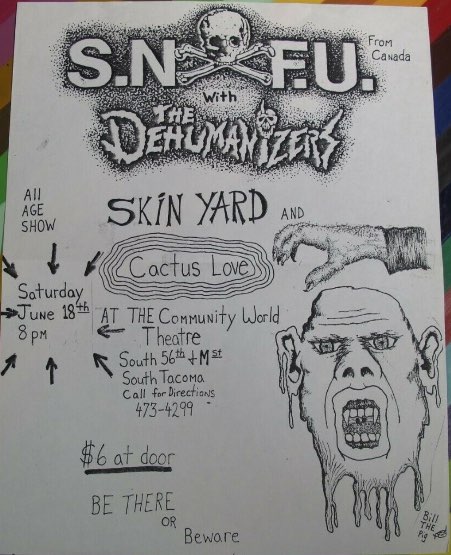 S.N.F.U.
From Canada
With
THE DEHUMANIZERS
All AGE SHOW
SKIN YARD AND
Cactus Love
Saturday
June 18th
8 pm
AT THE Community World
Theatre
South 56th + M st
South Tacoma
Call for Directions
473-4299
$6 at door
BE THERE
OR
Beware
Bill THE Pig